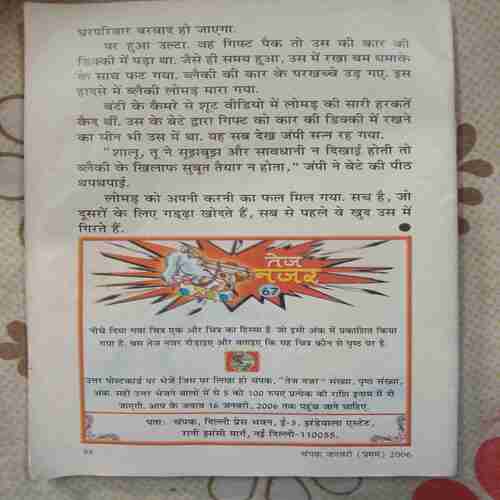 घरपरिवार बरबाद हो जाएगा.
पर हुआ उल्टा. वह गिफ्ट पैक तो उस की कार की
डिक्की में पड़ा था. जैसे ही समय हुआ, उस में रखा बम धमाके
के साथ फट गया. ब्लैकी की कार के परखच्चे उड़ गए. इस
हादसे में ब्लैकी लोमड़ मारा गया.
बंटी के कैमरे से शूट वीडियो में लोमड़ की सारी हरकतें
कैद थीं. उस के बेटे द्वारा गिफ्ट को कार की डिक्की में रखने
का सीन भी उस में था. यह सब देख जंपी सन्न रह गया.
“शालू, तू ने सूझबूझ और सावधानी न दिखाई होती तो
ब्लैकी के खिलाफ सुबूत तैयार न होता,” जंपी ने बेटे की पीठ
थपथपाई.
लोमड़ को अपनी करनी का फल मिल गया. सच है, जो
दूसरों के लिए गड्ढा खोदते हैं, सब से पहले वे खुद उस में
गिरते हैं.
तेज
नजर
67
नीचे दिया गया चित्र एक और चित्र का हिस्सा है जो इसी अंक में प्रकाशित किया
गया है. बस तेज नजर दौड़ाइए और बताइए कि यह चित्र कौन से पृष्ठ पर है.
उत्तर पोस्टकार्ड पर भेजें जिस पर लिखा हो चंपक, “तेज नजर” संख्या, पृष्ठ संख्या,
अंक. सही उत्तर भेजने वालों में से 5 को 100 रुपए प्रत्येक की राशि इनाम में दी
जाएगी. आप के जवाब 16 जनवरी, 2006 तक पहुंच जाने चाहिए.
पता: चंपक, दिल्ली प्रेस भवन, ई-3, झंडेवाला एस्टेट,
रानी झांसी मार्ग, नई दिल्ली-110055.
चंपक जनवरी (प्रथम) 2006